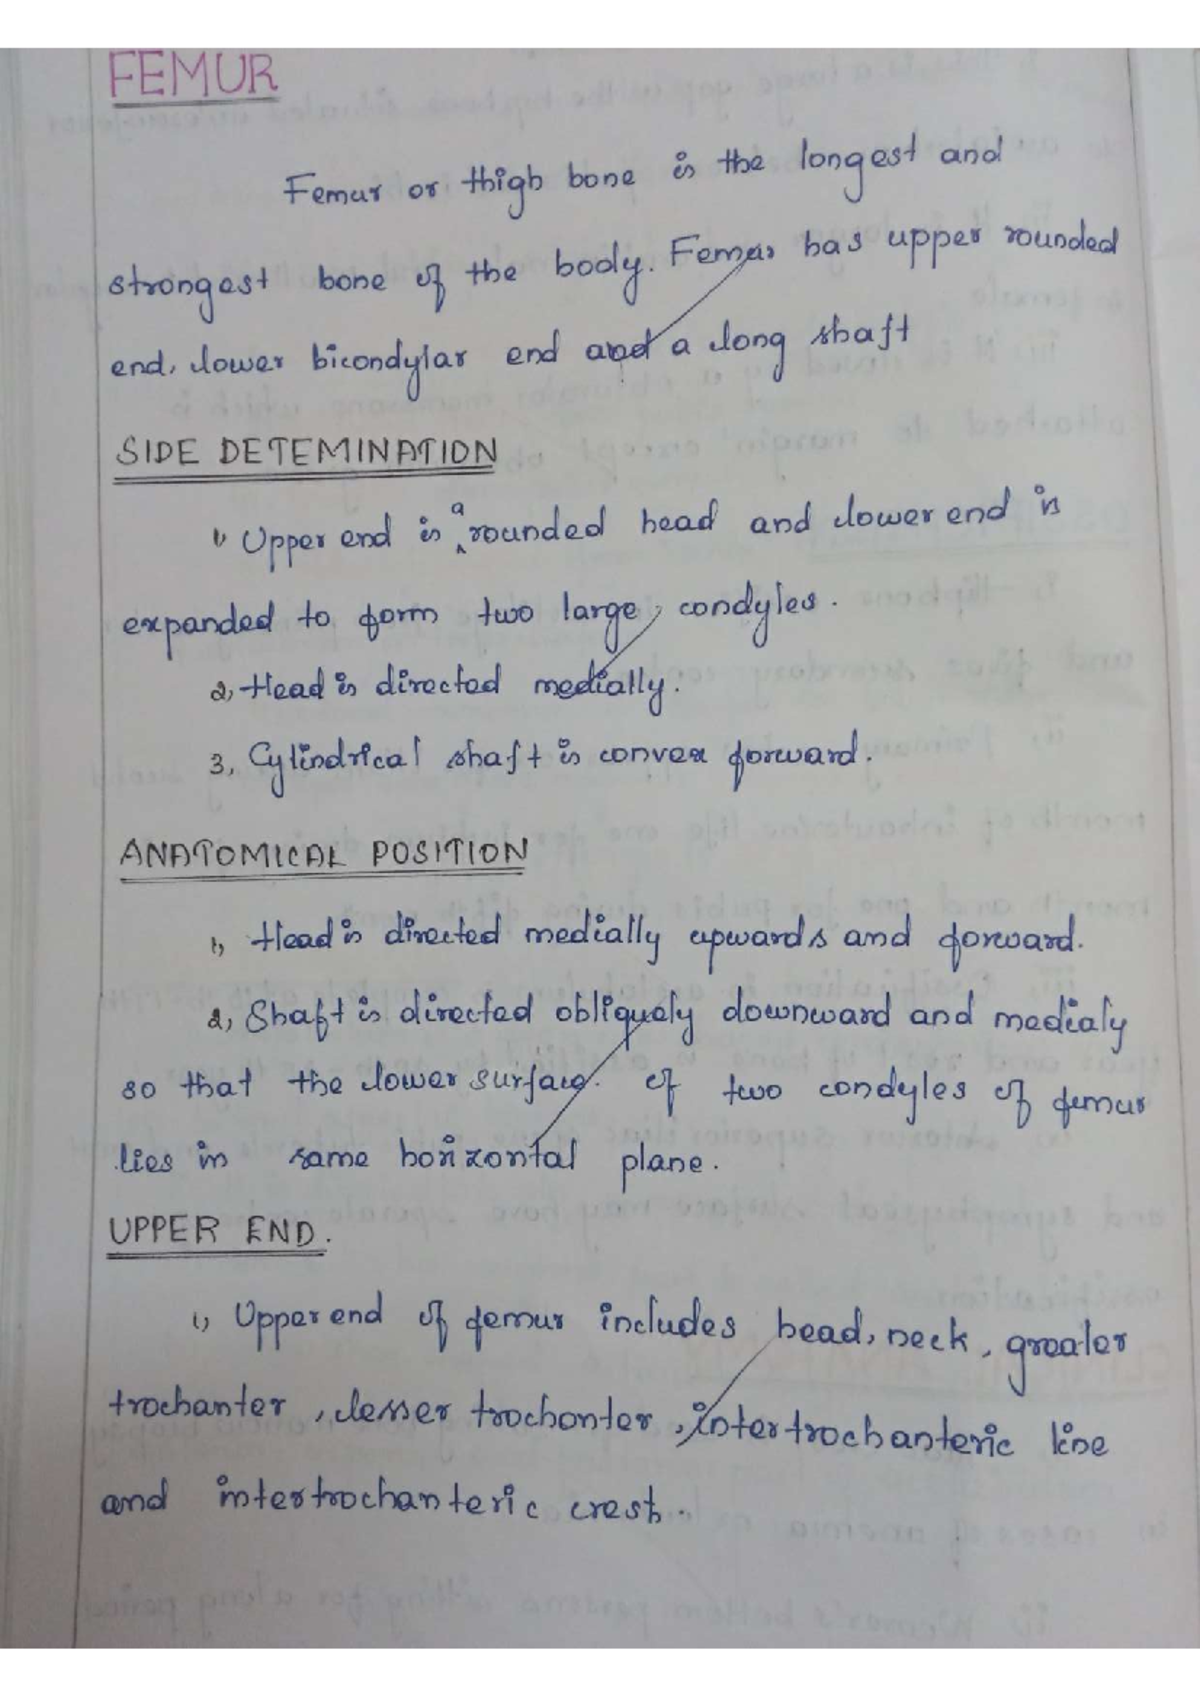 FEMUR
Femur or thigh bone is the longest and
strongest bone of the body. Femur has upper rounded
end, lower bicondylar end and a long shaft
SIDE DETEMINATION
1, Upper end is a rounded head and lower end is
expanded to form two large, condyles.
2, Head is directed medially.
3, Cylindrical shaft is convex forward.
ANATOMICAL POSITION
1, Head is directed medially upwards and forward.
2, Shaft is directed obliquely downward and medialy
so that the lower surface. of two condyles of femur
lies in same horizontal plane.
UPPER END.
1, Upper end of femur includes head, neck, greater
trochanter, lesser trochonter, intertrochanteric line
and intertrochanteric crest.